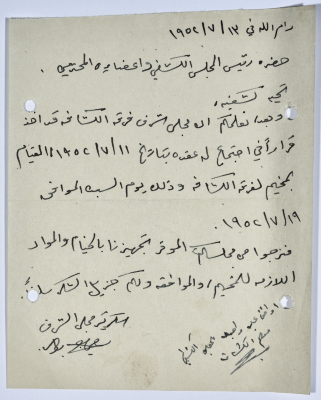 رام الله في ١٣/٧/١٩٥٢
حضرة رئيس المجلس الكشفي واعضاءه المحترمين.
تحيه كشفيه،
وبعد، نعلمكم ان مجلس شرف فرقة الكشافه قد اخذ
قراراً في اجتماع له عقده بتاريخ ١١/٧/١٩٥٢، القيام
بمخيم لفرقة الكشافه وذلك يوم السبت الموافق
١٩/٧/١٩٥٢.
فنرجوا من مجلسكم الموقر تجهيزنا بالخيام والمواد
اللازمه للمخيم، والموافقه ولكم جزيل الشكر سلفاً.
سكرتير مجلس الشرف